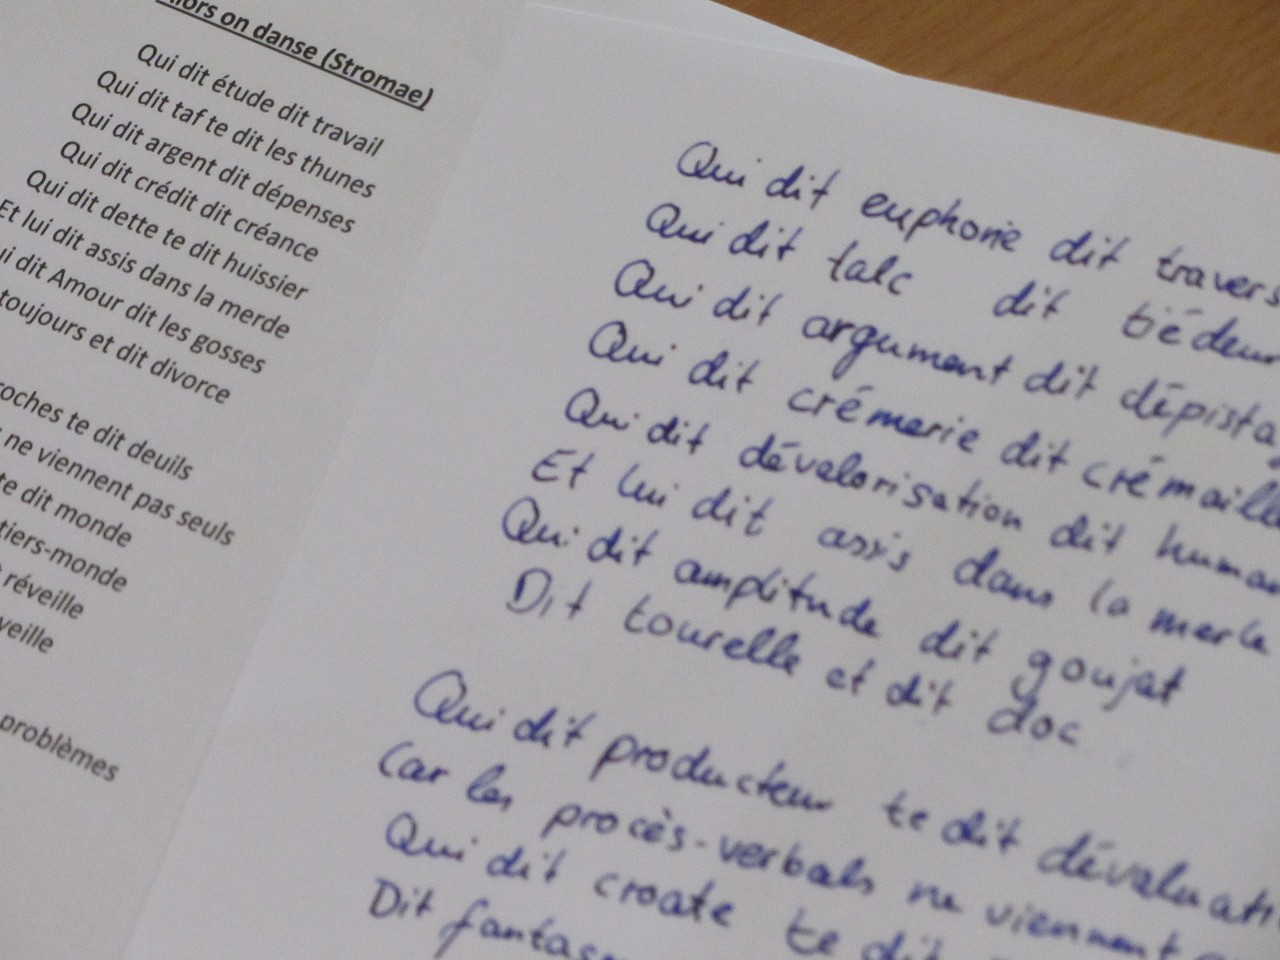 Alors on danse (Stromae)
Qui dit étude dit travail
Qui dit taf te dit les thunes
Qui dit argent dit dépenses
Qui dit crédit dit créance
Qui dit dette te dit huissier
Et lui dit assis dans la merde
ui dit Amour dit les gosses
toujours et dit divorce
oches te dit deuils
ne viennent pas seuls
te dit monde
tiers-monde
réveille
veille
problèmes
Qui dit euphorie dit travers
Qui dit talc dit tiédeur
Qui dit argument dit dépista
Qui dit crémerie dit crémaill
Qui dit dévalorisation dit human
Et lui dit assis dans la merle
Qui dit amplitude dit goujat
Dit tourelle et dit doc
Qui dit producteur te dit dévaluati
Car les procès-verbals ne viennent
Qui dit croate te dit
Dit fantas